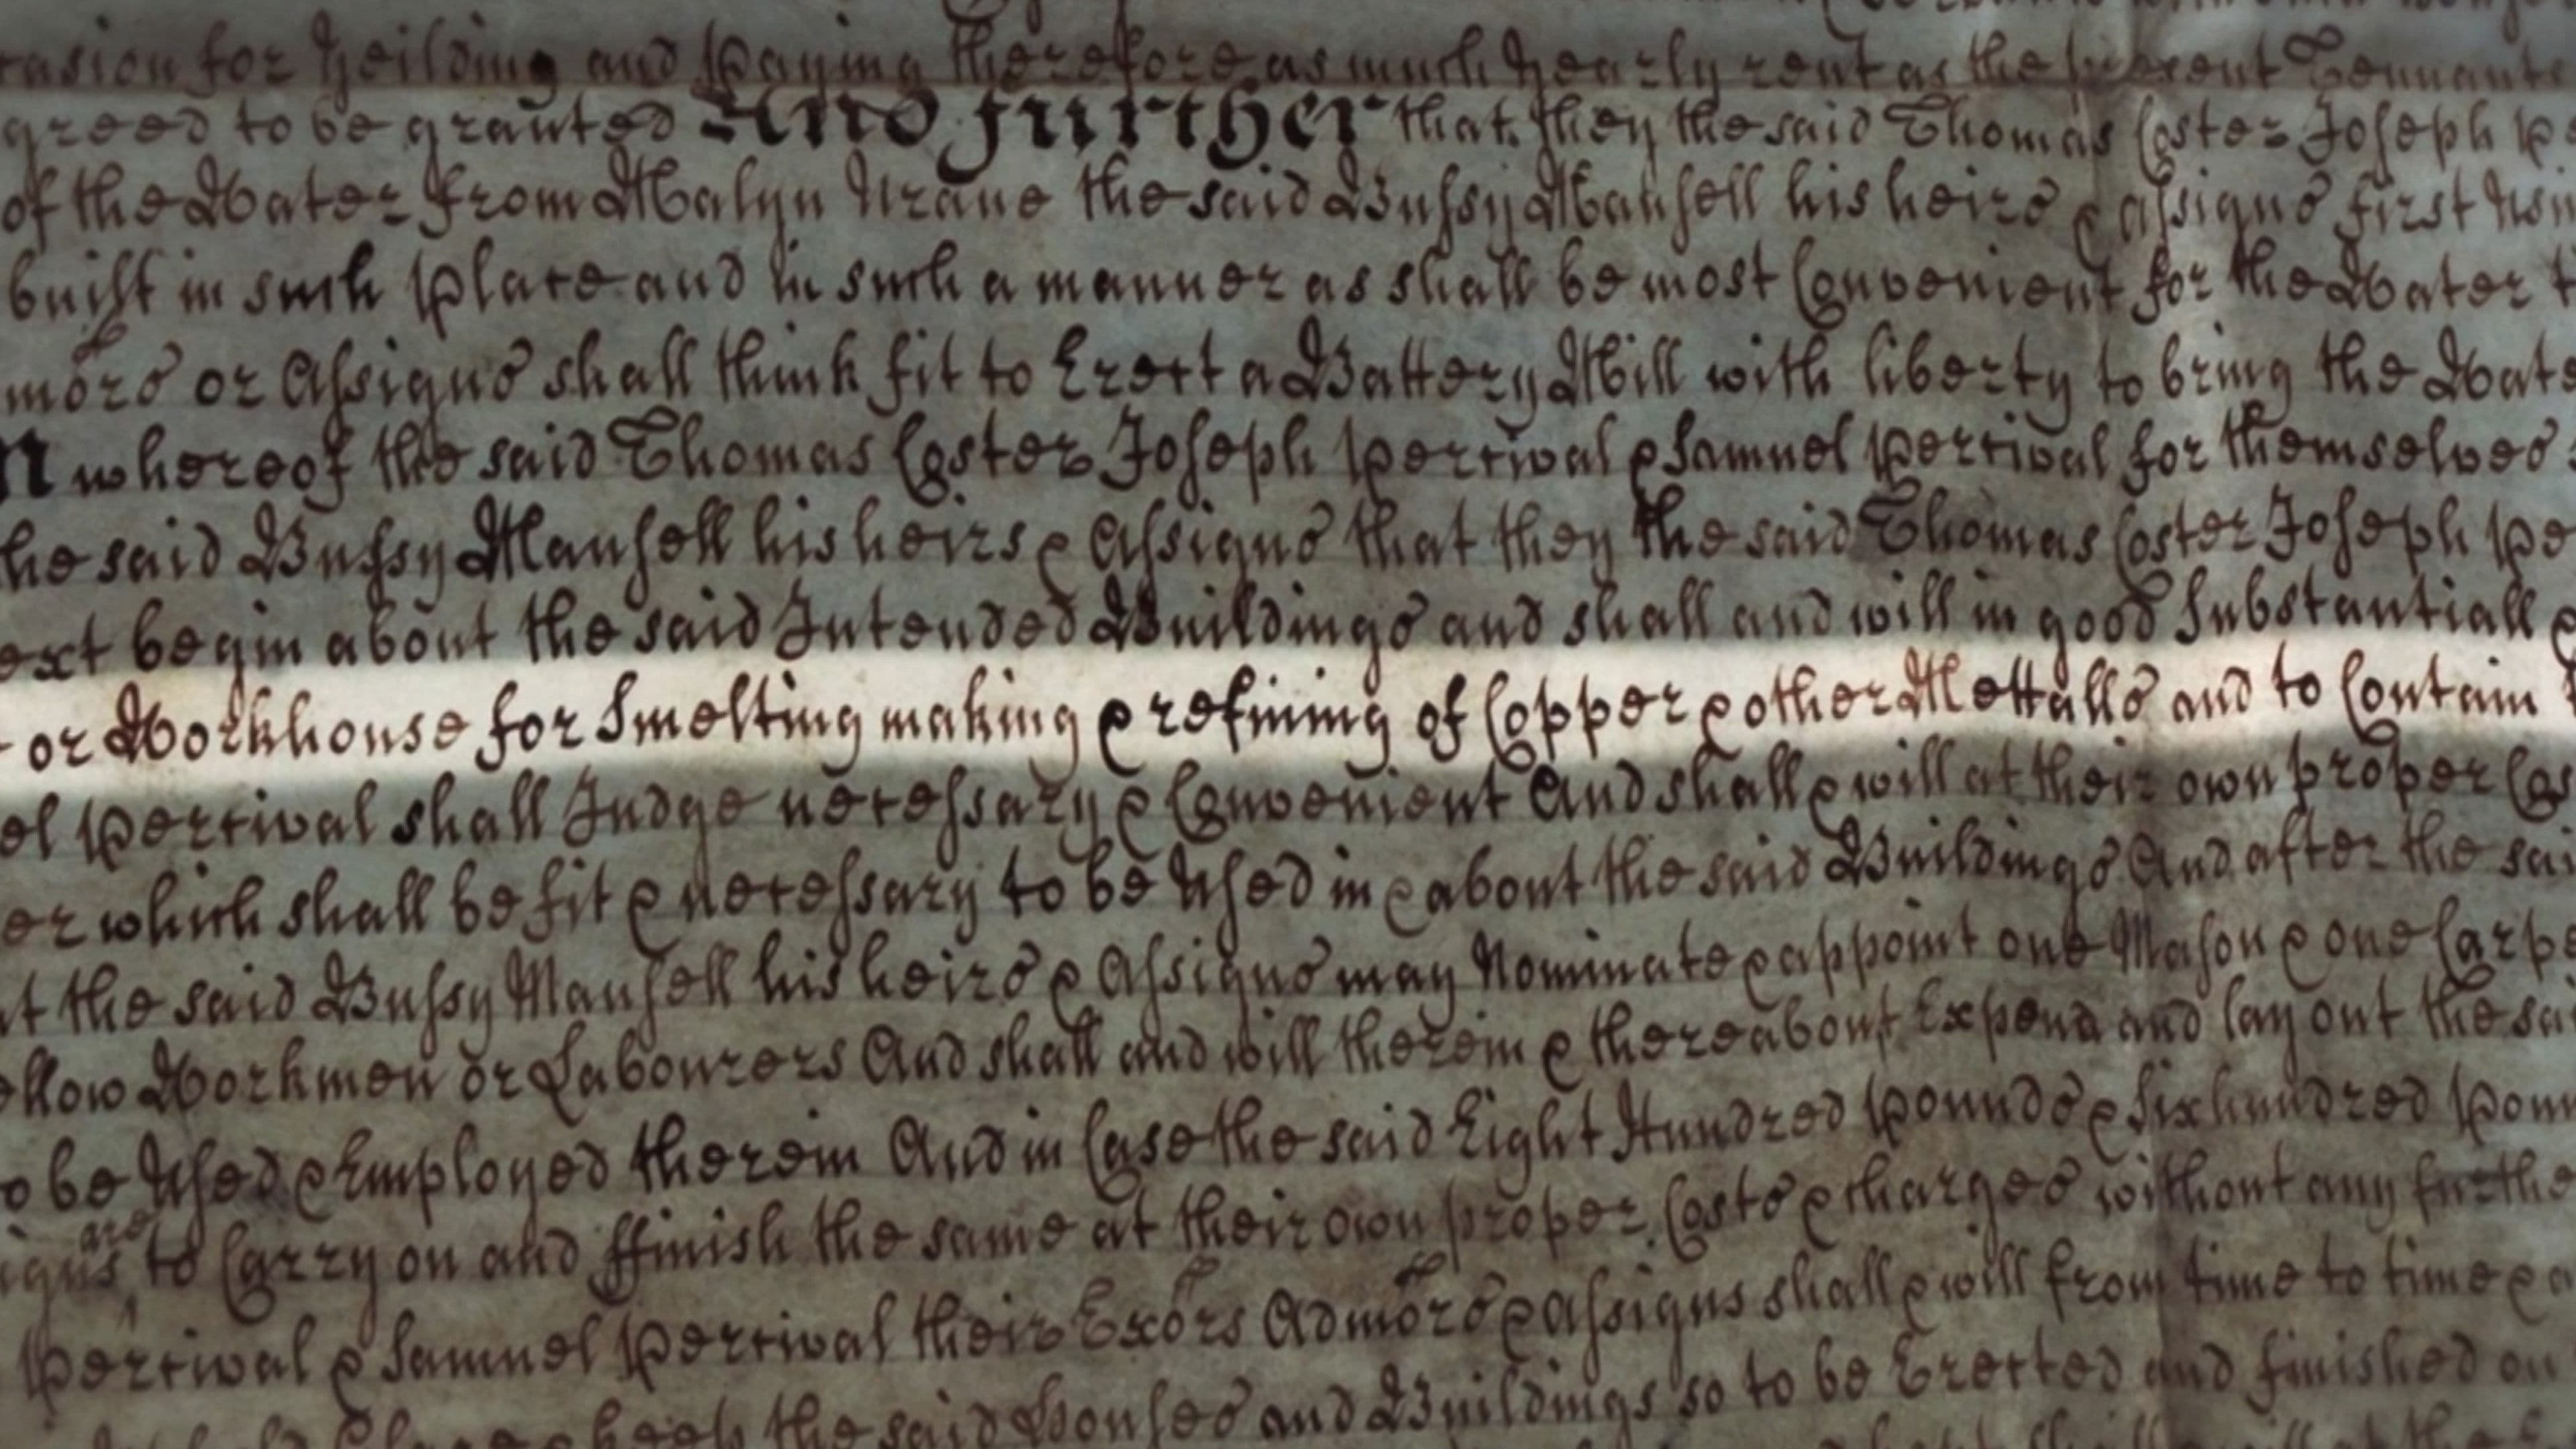 casion for Yeilding and Paying therefore as much Yearly rent as the present Tennants
greed to be granted And further that they the said Thomas Coster Joseph P
of the Water from Malyn Urane the said Bussy Mansell his heirs & assigns first
built in such Place and in such a manner as shall be most Convenient for the Water t
mors or Assigns shall think fit to Erect a Battery Mill with liberty to bring the Wate
N whereof the said Thomas Coster Joseph Percival & Samuel Percival for themselves
he said Bussy Mansell his heirs & Assigns that they the said Thomas Coster Joseph Pe
ext begin about the said Intended Buildings and shall and will in good Substantiall &
or Workhouse for Smelting making & refining of Copper & other Mettalls and to Contain
el Percival shall Judge necessary & Convenient And shall & will at their own proper Cos
er which shall be fit & necessary to be Used in & about the said Buildings And after the sai
t the said Bussy Mansell his heirs & Assigns may Nominate & appoint one Mason & one Carpe
ellow Workmen or Labourers And shall and will therein & thereabout Expend and lay out the sa
o be Used & Employed therein And in Case the said Eight Hundred Pounds & Six hundred Poun
igns are to Carry on and ffinish the same at their own proper Costs & charges without any furthe
Percival & Samuel Percival their Exors Admors & Assigns shall & will from time to time & a
keep the said Houses and Buildings so to be Erected and finished on